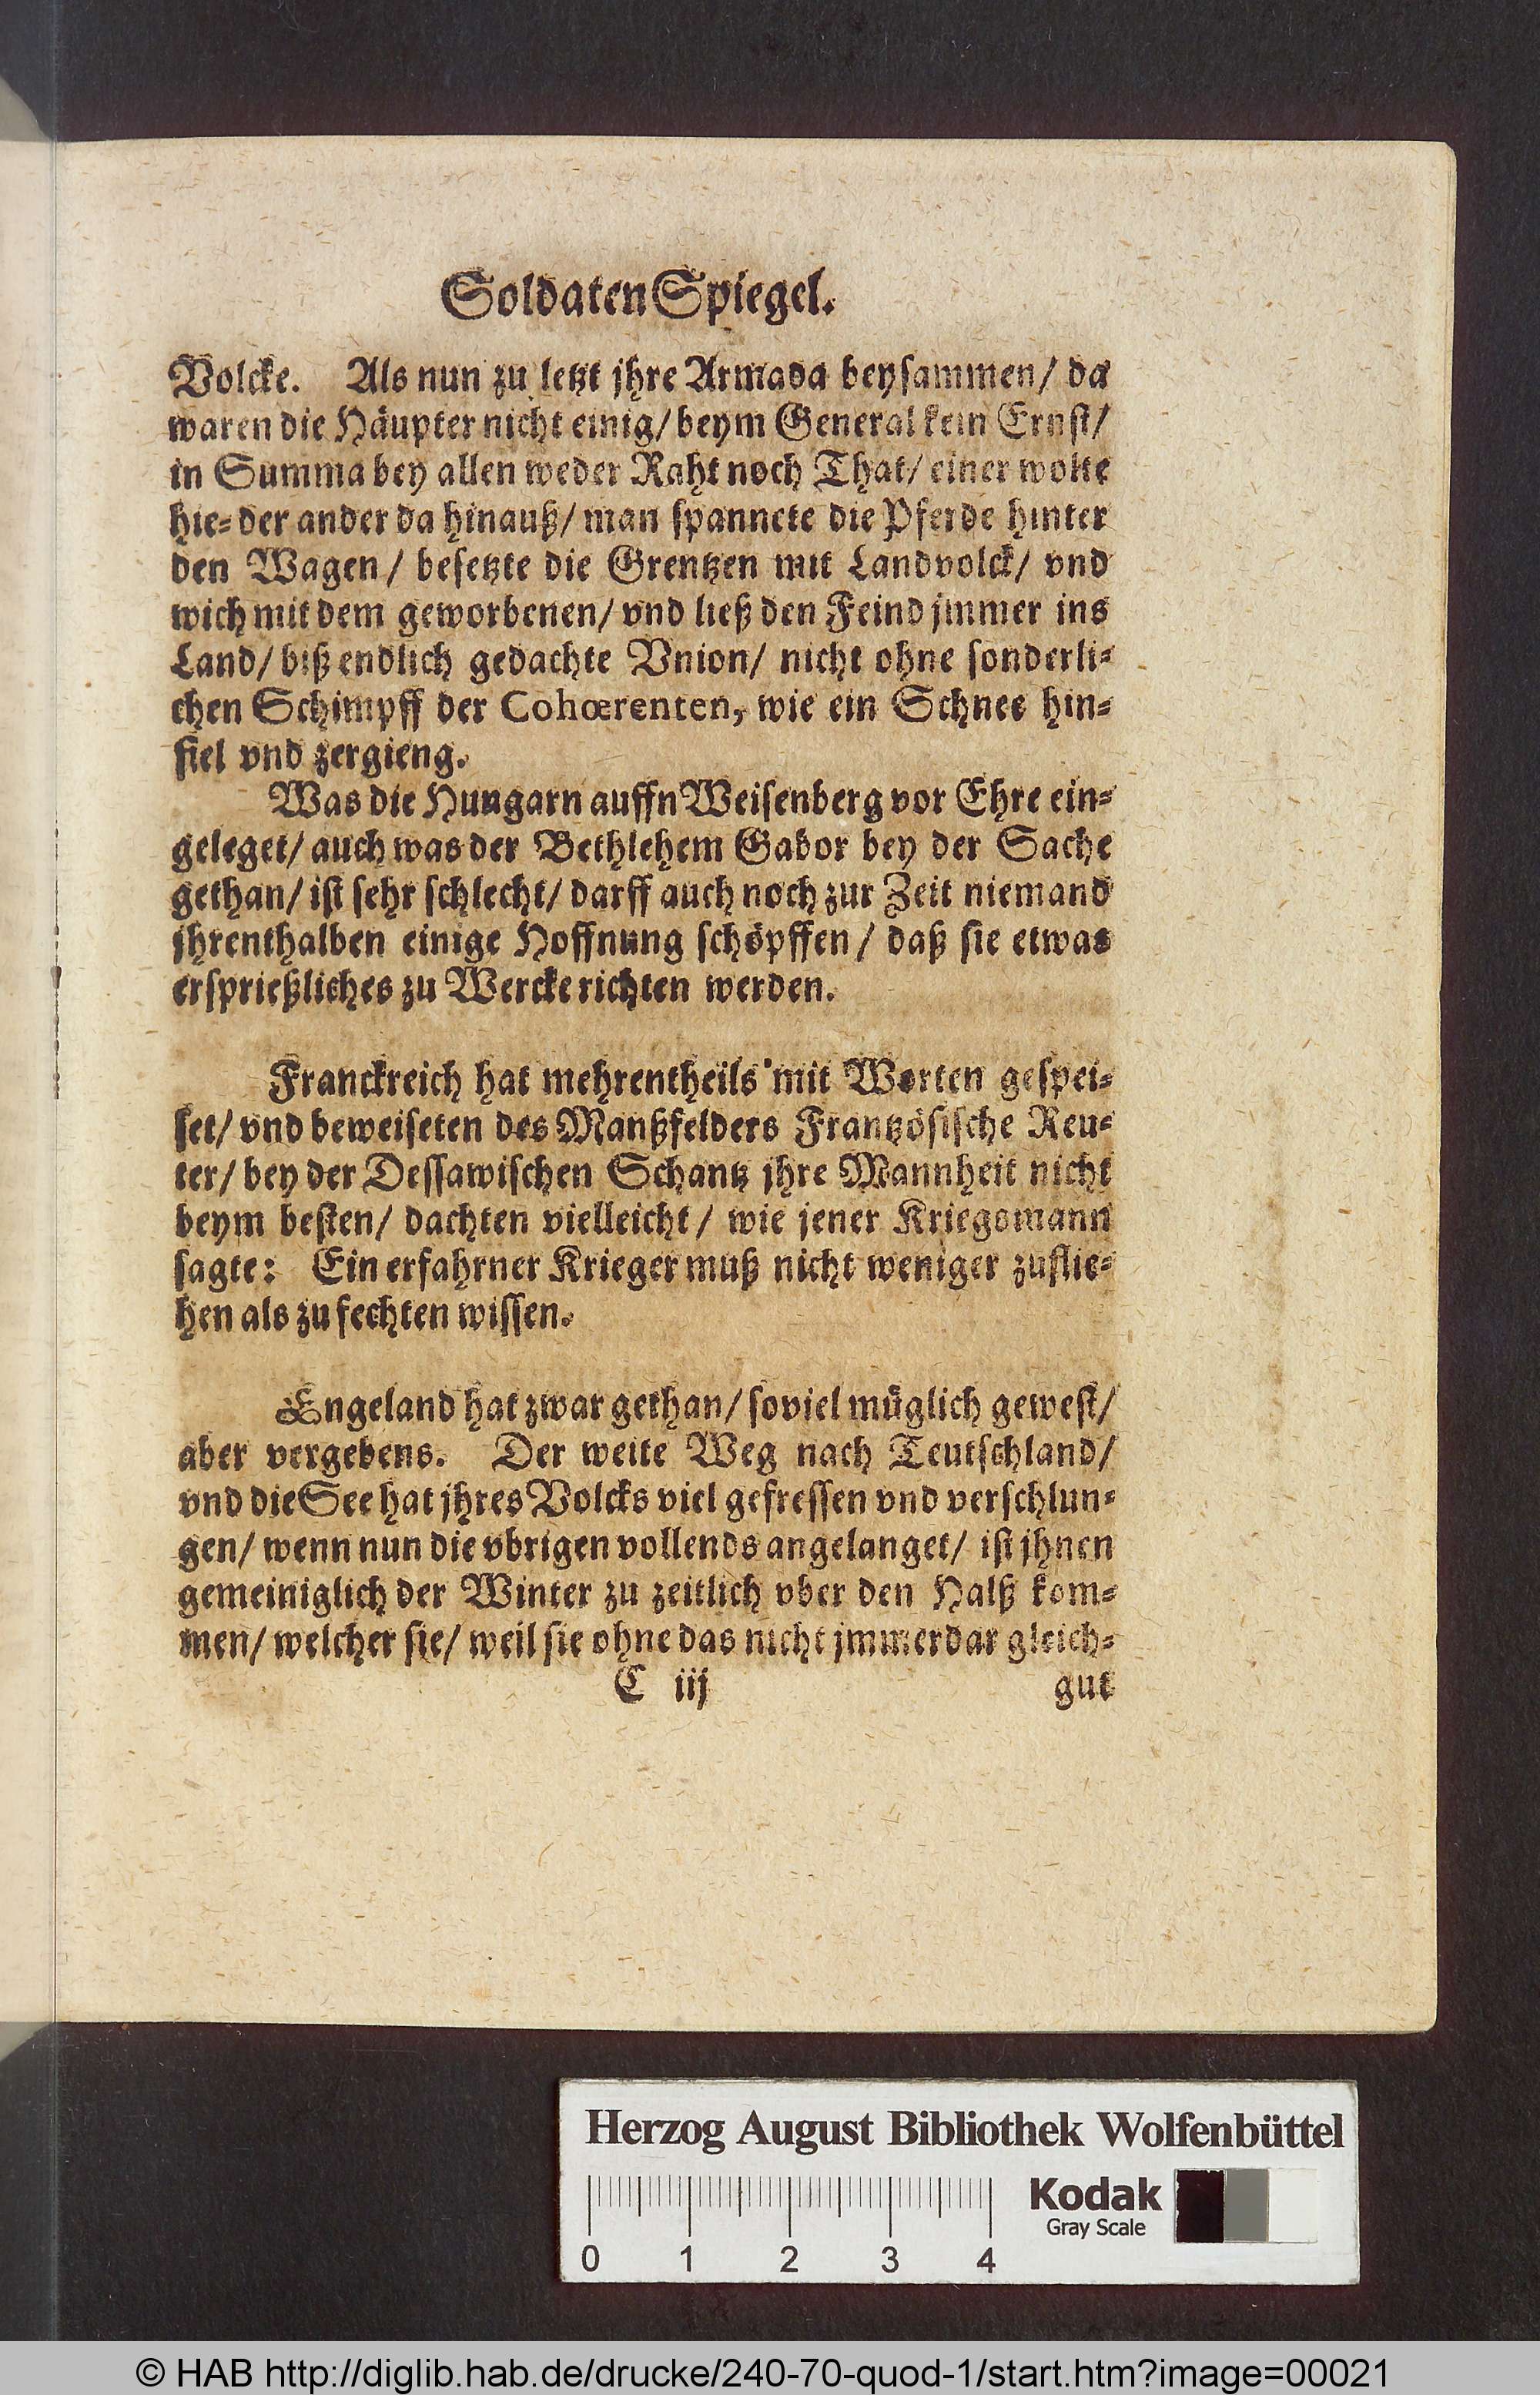 Soldaten Spiegel.
Volcke. Als nun zu letzt jhre Armada beysammen/ da
waren die Häupter nicht einig/ beym General kein Ernst/
in Summa bey allen weder Raht noch That/ einer wolte
hie= der ander da hinauß/ man spannete die Pferde hinter
den Wagen/ besetzte die Grentzen mit Landvolck/ vnd
wich mit dem geworbenen/ vnd ließ den Feind jmmer ins
Land/ biß endlich gedachte Vnion/ nicht ohne sonderli=
chen Schimpff der Cohœrenten, wie ein Schnee hin=
fiel vnd zergieng.
Was die Hungarn auffn Weisenberg vor Ehre ein=
geleget/ auch was der Bethlehem Gabor bey der Sache
gethan/ ist sehr schlecht/ darff auch noch zur Zeit niemand
jhrenthalben einige Hoffnung schöpffen/ daß sie etwas
ersprießliches zu Wercke richten werden.
Franckreich hat mehrentheils mit Worten gespei=
set/ vnd beweiseten des Manßfelders Frantzösische Reu=
ter/ bey der Dessawischen Schantz jhre Mannheit nicht
beym besten/ dachten vielleicht/ wie jener Kriegsmann
sagte: Ein erfahrner Krieger muß nicht weniger zuflie=
hen als zu fechten wissen.
Engeland hat zwar gethan/ soviel müglich gewest/
aber vergebens. Der weite Weg nach Teutschland/
vnd die See hat jhres Volcks viel gefressen vnd verschlun=
gen/ wenn nun die vbrigen vollends angelanget/ ist jhnen
gemeiniglich der Winter zu zeitlich vber den Halß kom=
men/ welcher sie/ weil sie ohne das nicht jmmerdar gleich=
C iij gut
Herzog August Bibliothek Wolfenbüttel
Kodak
Gray Scale
0 1 2 3 4
© HAB http://diglib.hab.de/drucke/240-70-quod-1/start.htm?image=00021